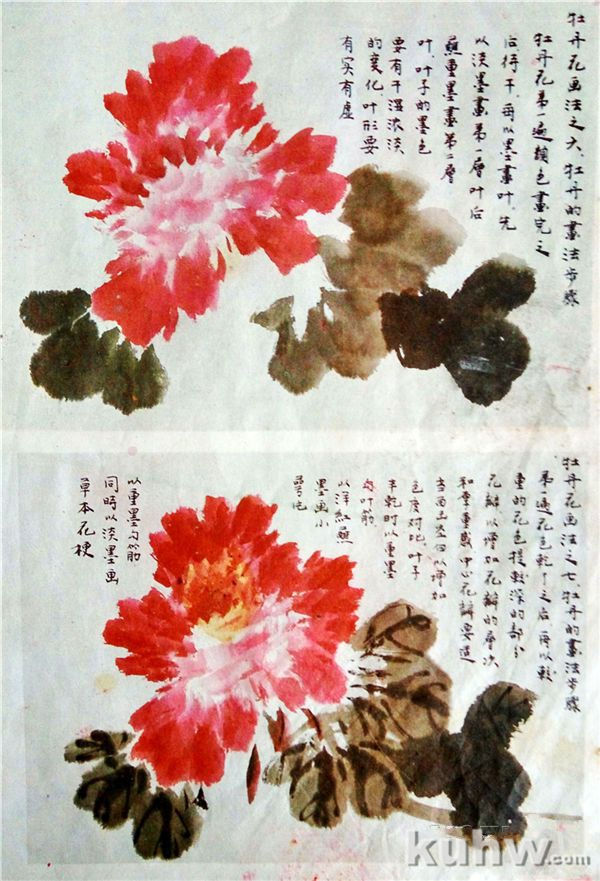 牡丹花画法之六、牡丹的畫法步驟
牡丹花第一遍顔色畫完之
后待干，再以墨畫叶。先
以淡墨畫第一層叶后
蘸重墨畫第二層
叶，叶子的墨色
要有干濕浓淡
的变化，叶形要
有实有虚
牡丹花画法之七、牡丹的畫法步驟
第一遍花色乾了之后，再以較
重的花色提較深的部分
花瓣以增加花瓣的層次
和厚重感，中心花瓣要適
当画
以增加
色度对比，叶子
半乾时以重墨
勾叶筋
以洋紅蘸
墨画小
以重墨勾筋
同時以淡墨画
草本花梗
kuhw.com